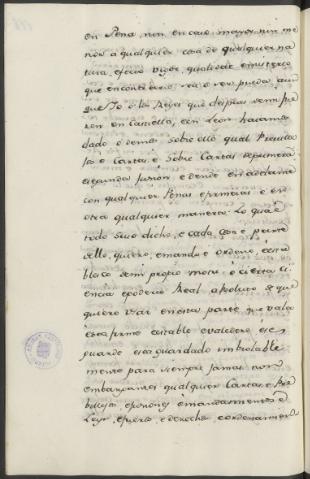 en Pena, nin en caso mayor, nin me
nor a qualquier cosa de qualquier na
tura, efecto vigor, qualidad e misterio
que en contrario sea o ser pueda, aun
que Yo o los Reyes que despues de mi fue
ren en Castilla, e en Leon hayamos
dado o demos sobre ello qual Preville
jo e Cartas, e Sobre Cartas de primera
e segunda Jusion, e dende en adelante
con qualquier Penas e premias e en
otra qualquier manera. Lo qual
todo suso dicho, e cada cosa e parte
dello, quiero, e mando e ordeno e esta
blezco de mi propio motu, e cierta ci
encia e poderio Real absoluto de que
quiero usar en esta parte que vala
e sea firme estable e valedero e se
guarde e sea guardado inviolable
mente para siempre Jamas non
embargantes qualquier Cartas, e Pre
billejos, e Leyes
Leyes, e fueros, e derechos, e ordenamient